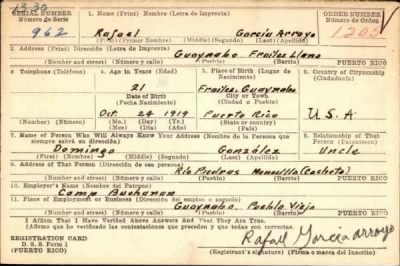 13-30
SERIAL NUMBER 1. Name (Print) Nombre (Letra de Imprenta) ORDER NUMBER
Número de Serie Número de Orden
962 Rafael García Arroyo 1205
(First) (Primer Nombre) (Middle) (Segundo) (Last) (Apellido)
2. Address (Print) Dirección (Letra de Imprenta)
Guaynabo Frailes Llano
(Number and street) (Número y calle) (Town) (Pueblo) PUERTO RICO
3. Telephone (Teléfono) 4. Age in Years (Edad) 5. Place of Birth (Lugar de Nacimiento) 6. Country of Citizenship (Ciudadanía)
21 Frailes, Guaynabo
Date of Birth City or Town
(Fecha Nacimiento) (Ciudad o Pueblo)
Oct 24 1919 Puerto Rico U.S.A
(Mo.) (Day) (Yr.) State or country
(Mes) (Día) (Año) (Estado o país)
7. Name of Person Who Will Always Know Your Address (Nombre de la Persona que siempre sabrá su dirección) 8. Relationship of That Person (Parentesco)
Domingo González Uncle
(First) (Primero) (Middle) (Segundo) (Last) (Apellido)
9. Address of That Person (Dirección de esa persona)
Río Piedras Monacillo
(Number and street) (Número y calle) (Town) (Pueblo) PUERTO RICO
10. Employer's Name (Nombre del Patrono)
Camp Buchanan
11. Place of Employment or Business (Dirección del empleo o negocio)
Guaynabo Pueblo Viejo
(Number and street) (Número y calle) (Town) (Pueblo) PUERTO RICO
I Affirm That I Have Verified Above Answers And That They Are True.
(Afirmo que he verificado las contestaciones que preceden y que son ciertas)
REGISTRATION CARD
D. S. S. Form 1
(PUERTO RICO)
Rafael García Arroyo
Registrant's signature) (Firma o marca del Inscrito)